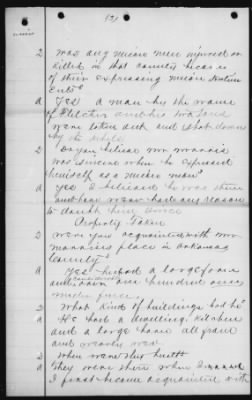 2 Was any union men injured or
killed in that county because
of their expressing union sentim
ents?
a Yes a man by the name
of Fletcher and his two sons
were taken out and shot down
by the rebels
2 Do you believe Mr
was sincere when he expressed
himself as a union man?
a Yes I believed he was then
and have never had any reason
to doubt him since
Property Taken
2 Were you acquainted with
place in Arkansas
County?
a Yes he had a large farm
and over one hundred acres
under fence.
2 What kind of buildings had he?
a He had a dwelling, kitchen
and a large barn all frame
and nearly new
2 When were they built?
a They were there when I
I first became acquainted with